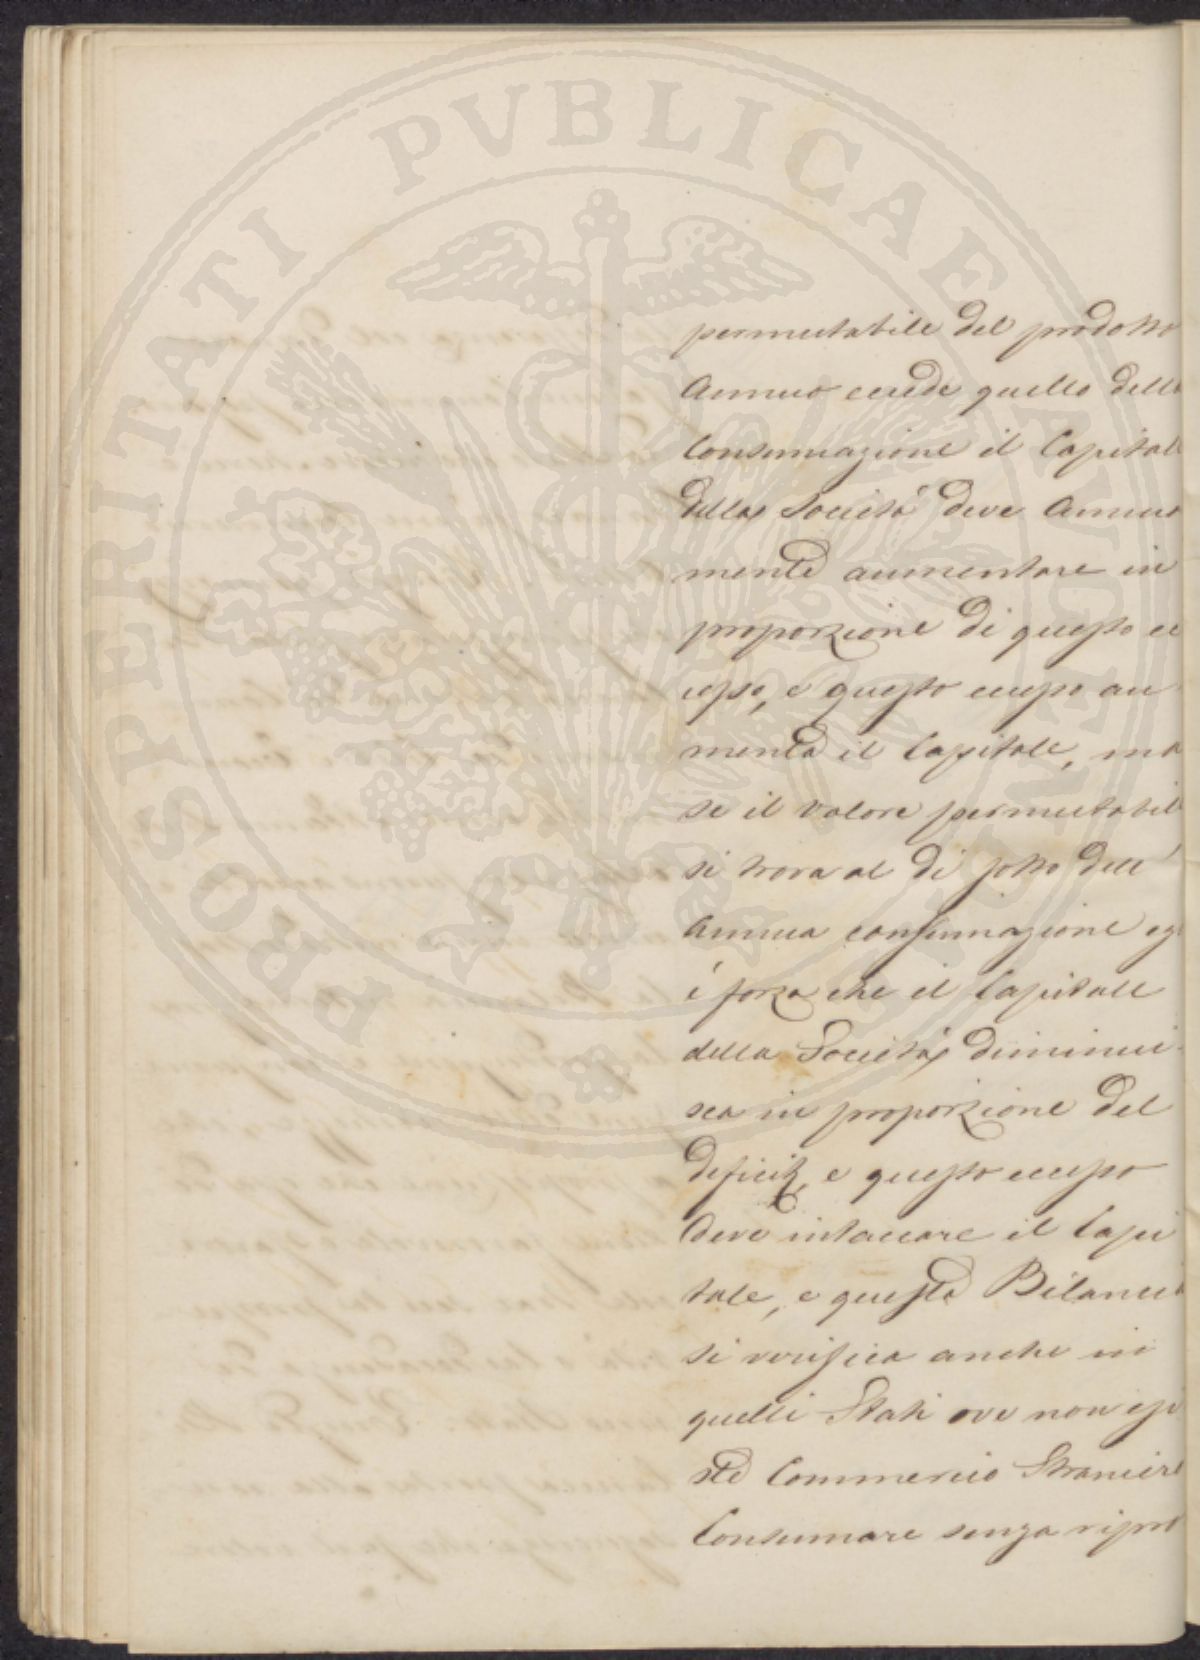 PROSPERITATI PUBLICAE AUGENDAE
permutabile del prodotto
Annuo ecede quello della
Consumazione il Capitale
della Società deve Annua
mente aumentare in
proporzione di questo ec
cesso, e questo eccesso au
menta il Capitale, ma
se il valore permutabile
si trova al di sotto dell'
Annua consumazione eg
è forza che il Capitale
della Società diminui-
sca in proporzione del
deficit, e questo eccesso
deve intaccare il Capi
tale, e questa Bilancia
si verifica anche in
quelli Stati ove non esi
ste Commercio Straniero
Consumare senza ripro